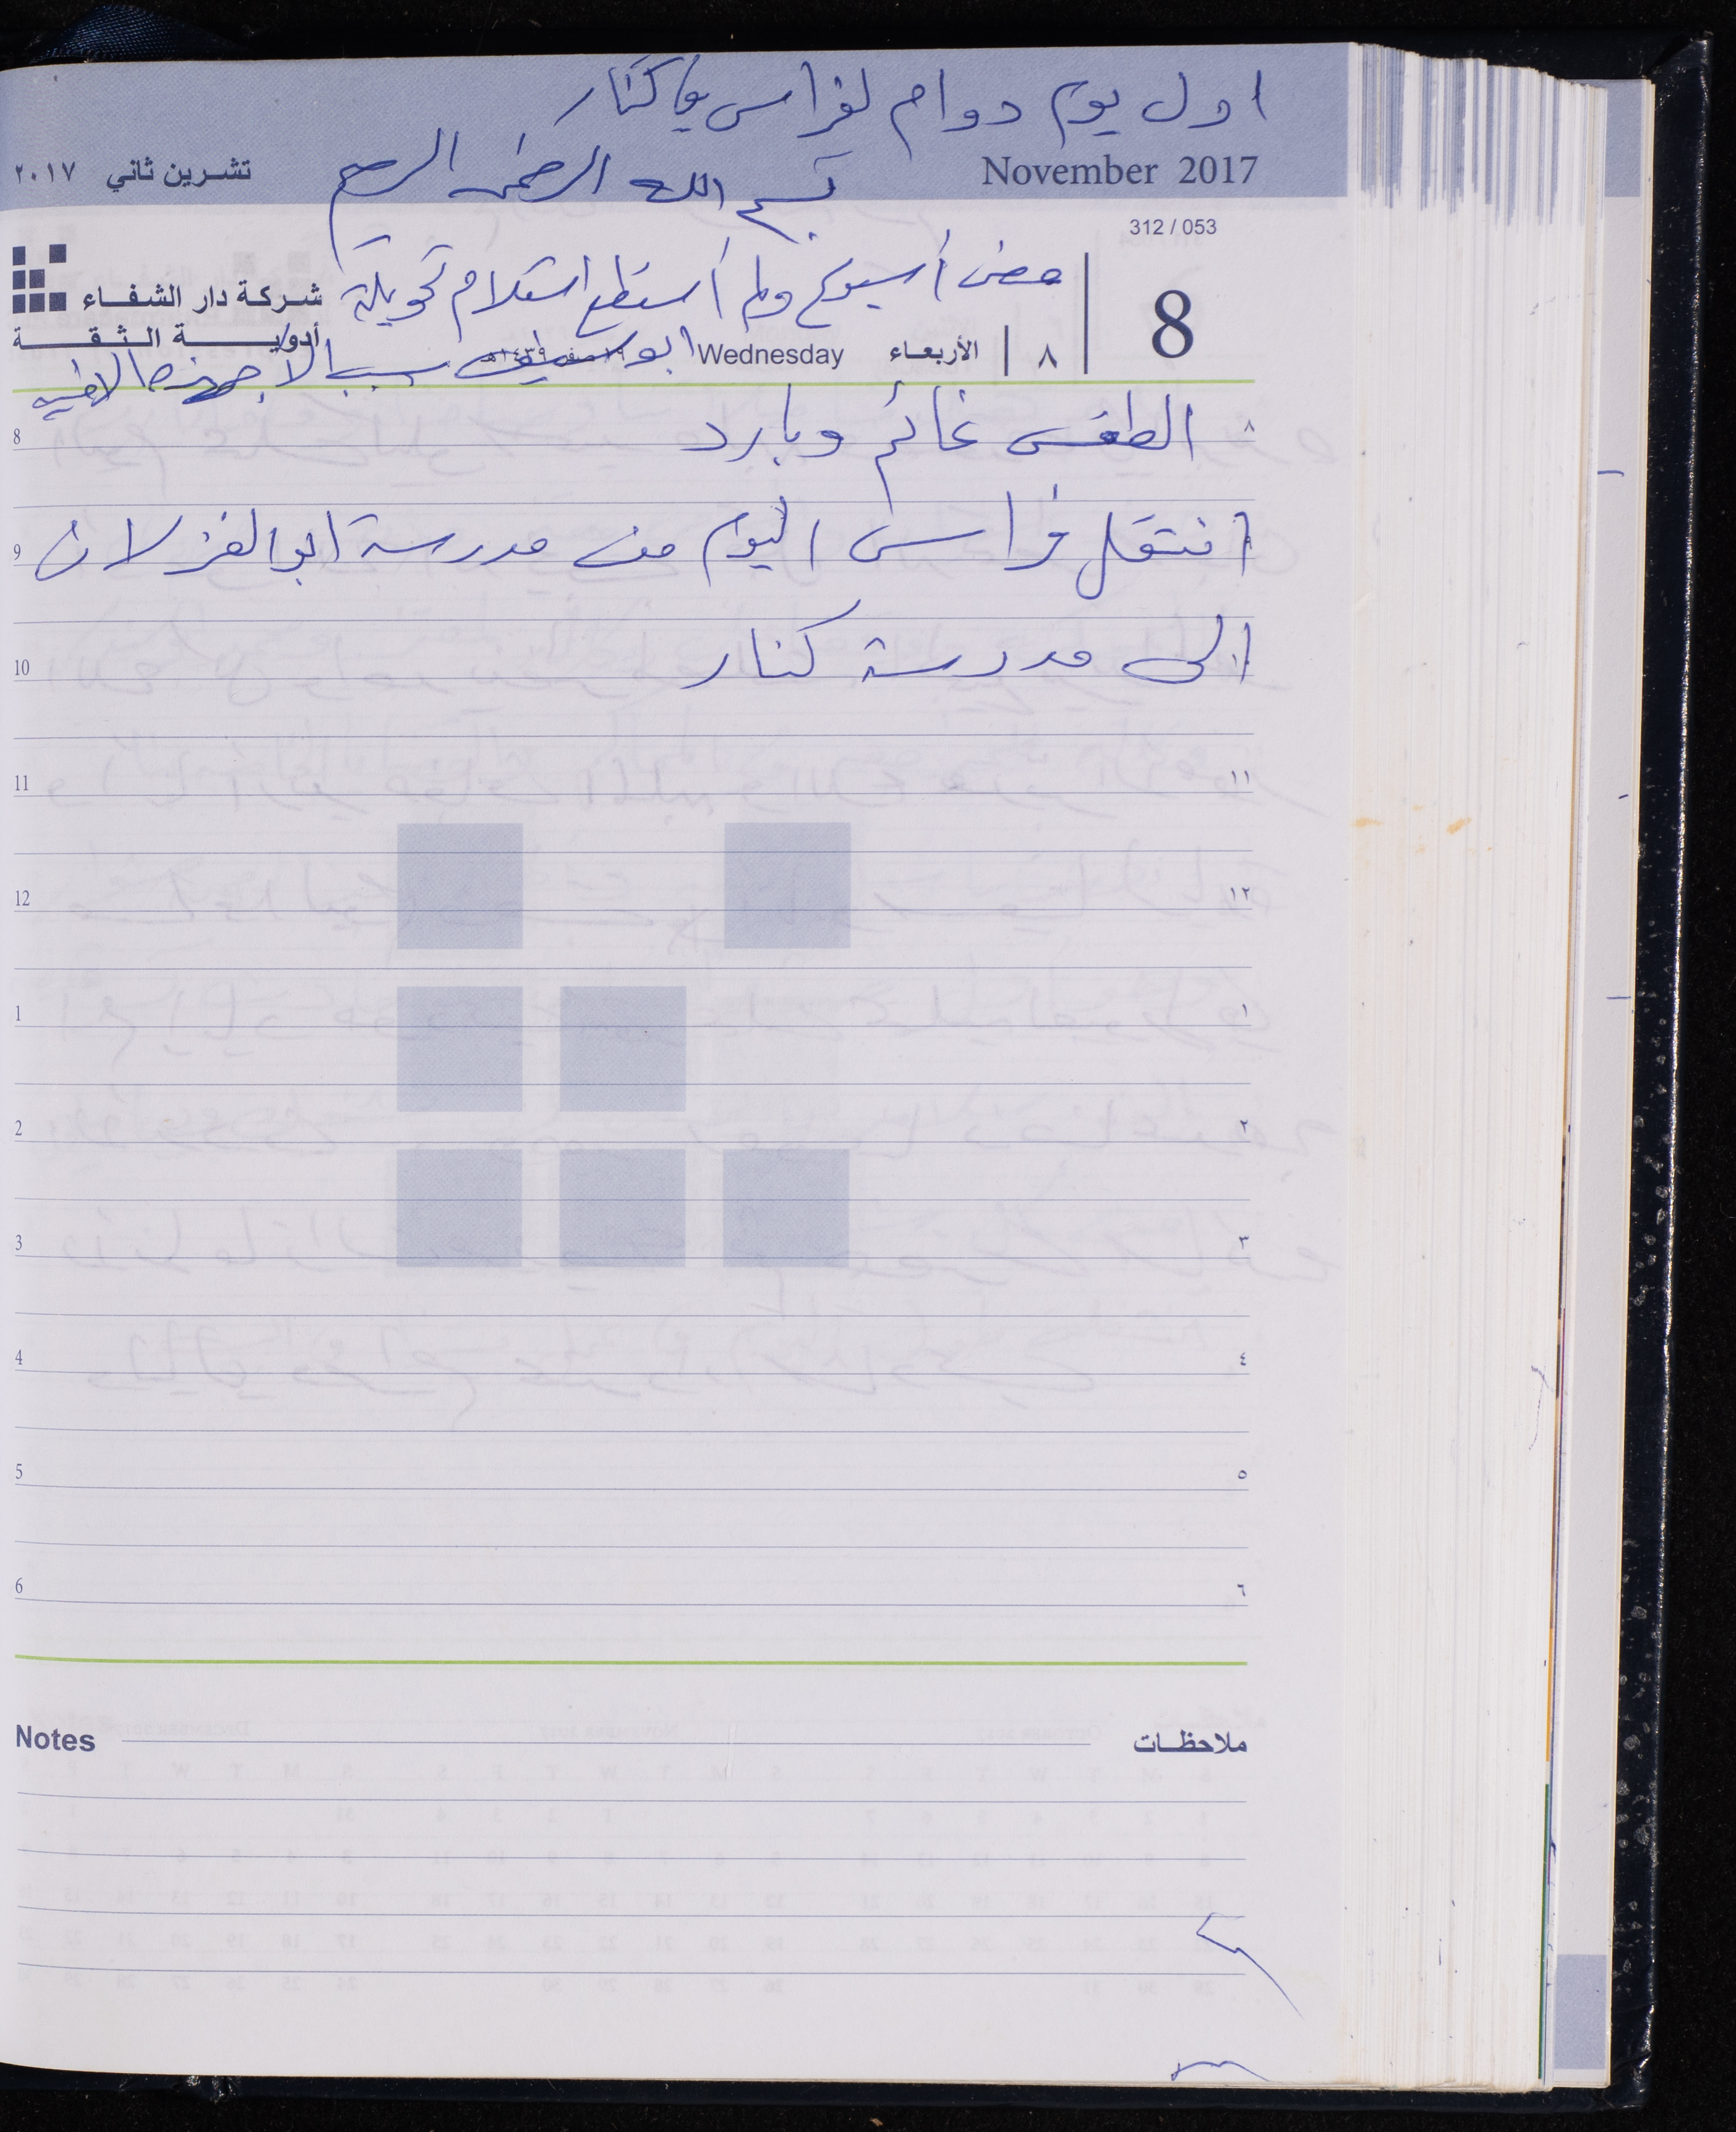 اول يوم دوام لفراس في كنار
November 2017
تشرين ثاني ٢٠١٧
بسم الله الرحمن الرحيم
312 / 053
مضى أسبوع ولم أستطع استلام تحويلة
ابو سيف بسبب الاجهزه الامنيه
8
٨
الأربعاء
Wednesday
١٩ صفر ١٤٣٩هـ
شركة دار الشفاء
أدوية الثقة
8 الطقس غائم وبارد ٨
9 انتقل فراس اليوم من مدرسة ابو الغزلان
10 الى مدرسة كنار
11 ١١
12 ١٢
1 ١
2 ٢
3 ٣
4 ٤
5 ٥
6 ٦
Notes ملاحظات